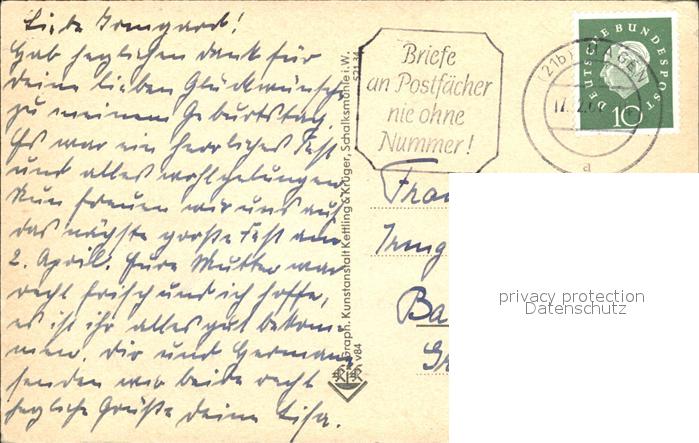 Liebe Irmgard!
Hab herzlichen Dank für
Deine lieben Glückwünsche
zu meinem Geburtstag.
Es war ein herrliches Fest
und alles wohlgelungen
Nun freuen wir uns auf
das nächste große Fest am
2. April. Eure Mutter war
recht frisch und ich hoffe,
es ist ihr alles gut bekom-
men. Dir und Hermann
senden wir beide recht
herzliche Grüße Deine Lisa.
Graph. Kunstanstalt Kettling & Krüger, Schalksmühle i. W.
S21 34
v84
Briefe
an Postfächer
nie ohne
Nummer!
(21b) HAGEN
a
DEUTSCHE BUNDESPOST
10
Frau
Irmg
Ba
privacy protection
Datenschutz